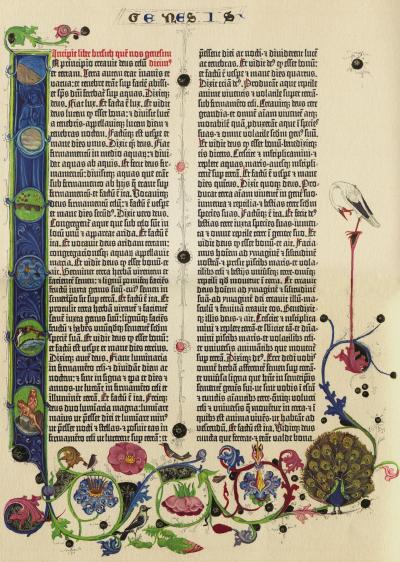 GENESIS
Incipit liber bresith quē nos genesim
A principio creauit deus celū dicim⁹
et terram. Terra autem erat inanis et
vacua: et tenebre erāt sup faciē abissi:
et spūs dñi ferebatur sup aquas. Dixitq;
deus. Fiat lux. Et facta ē lux. Et vidit
deus lucem cp esset bona: et diuisit lucē
a tenebris· appellauitq; lucem diem et
tenebras noctem. Factūq; est vespe et
mane dies unus. Dixit q̄q; deus. Fiat
firmamentū in medio aquaꝝ: et diui-
dat aquas ab aquis. Et fecit deus fir-
mamentū: diuisitq; aquas que erāt
sub firmamento ab hijs q̄ erant sup
firmamentū: et factū ē ita. Vocauitq;
deus firmamentū celū: et factū ē vespe
et mane dies secūd⁹. Dixit vero deus.
Congregent aque que sub celo sūt in
locū unū et appareat arida. Et factū ē
ita. Et vocauit deus aridam terram:
congregacionesq; aquaꝝ appellauit
maria. Et vidit deus cp esset bonū· et
ait. Germinet terra herbā virentem et
facientē semen: et lignū pomiferū faciēs
fructū iuxta genus suū· cui⁹ semen in
semetipso sit sup terrā. Et factū ē ita. Et
protulit terra herbā virentē et facientē
semē iuxta gen⁹ suū: lignūq; faciēs
fructū et habēs unūqdq; sementē scdm
speciē suā. Et vidit deus cp esset bonū:
et factū est vespe et mane dies tercius.
Dixitq; autē deus. Fiant luminaria
in firmamēto celi· et diuidāt diem ac
noctē: et sint in signa et tpa et dies et
annos: ut luceāt in firmamēto celi et
illuminēt terrā. Et factū ē ita. Fecitq;
deus duo luminaria magna: lumiare
maius ut pesset diei et lumiare min⁹
ut pesset nocti· et stellas· et posuit eas in
firmamēto celi ut lucerent sup terrā: et
pessent diei ac nocti· et diuiderent lucē
ac tenebras. Et vidit de⁹ cp esset bonū:
et factū ē vespe et mane dies quartus.
Dixit etiā de⁹. Producant aque reptile
anime viuentis et volatile sup terrā
sub firmamēto celi. Creauitq; deus cete
grandia· et omnē aīam viuentē atq;
motabilē quā pduxerāt aque ī species
suas· et omne volatile scdm gen⁹ suū.
Et vidit deus cp esset bonū· benedixitq;
eis dicens. Crescite et multiplicamini·
et replete aquas maris· auesq; mltipli-
cent sup terrā. Et factū ē vespe et mane
dies quintus. Dixit quoq; deus. Pro-
ducat terra aīam viuentē in gene suo·
iumenta et reptilia· et bestias terre scdm
species suas. Factūq; ē ita. Et fecit de⁹
bestias terre iuxta species suas· iumen-
ta et omne reptile terre ī genere suo. Et
vidit deus cp esset bonū· et ait. Facia-
mus hoīem ad ymaginē et silitudinē
nostrā· et presit piscibz maris· et vola-
tilibz celi et bestijs uniuseq; terre· omiq;
reptili qd mouetur ī terra. Et creauit
deus hoīem ad ymaginē et silitudinē
suā· ad ymaginē dei creauit illū· mascu-
lū et feminā creauit eos. Benedixitq;
illis deus· et ait. Crescite et mltiplica-
mini et replete terrā· et subicite eā· et dña-
mini piscibz maris· et volatilibz celi·
et uniuersis animātibz que mouentur
sup terrā. Dixitq; de⁹. Ecce dedi vobis
omnē herbā afferentē semen sup terrā·
et uniuersa ligna que hñt in semetipis
sementē generis sui: ut sint vobis ī escā
et cunctis aīantibz terre· omiq; volucri
celi et uniuersis q mouētur in terra· et ī
quibz est anima viues: ut habeāt ad
vescendū. Et factū est ita. Viditq; deus
cuncta que fecerat· et erāt valde bona.